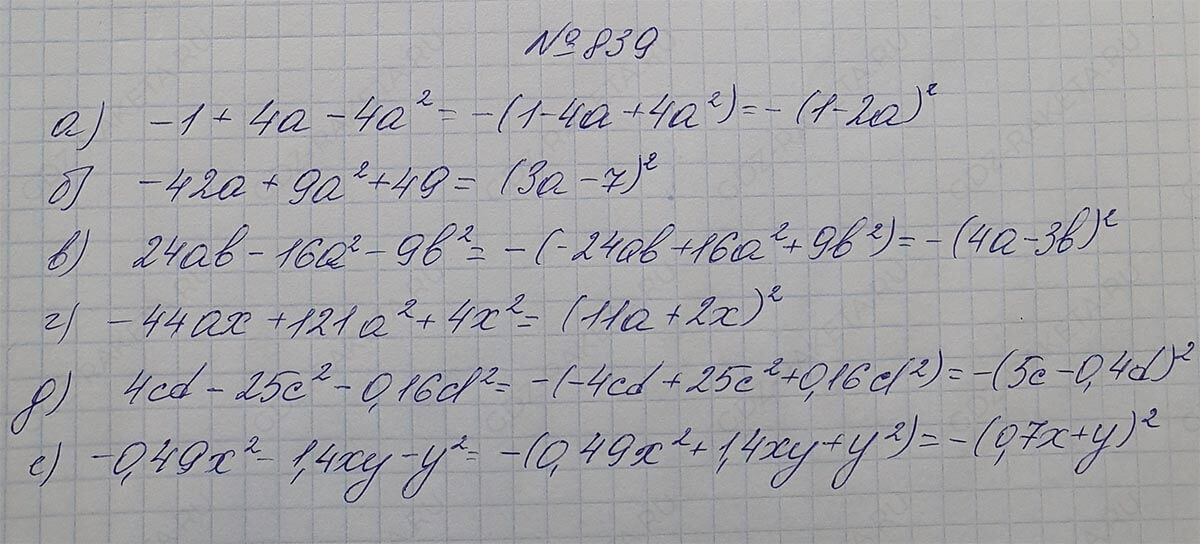 №839
а) -1 + 4a - 4a² = -(1-4a+4a²) = -(1-2a)²
б) -42a + 9a² + 49 = (3a-7)²
в) 24ab - 16a² - 9b² = -(-24ab + 16a² + 9b²) = -(4a-3b)²
г) -44ax + 121a² + 4x² = (11a + 2x)²
д) 4cd - 25c² - 0,16d² = -(-4cd + 25c² + 0,16d²) = -(5c - 0,4d)²
е) -0,49x² - 1,4xy - y² = -(0,49x² + 1,4xy + y²) = -(0,7x + y)²